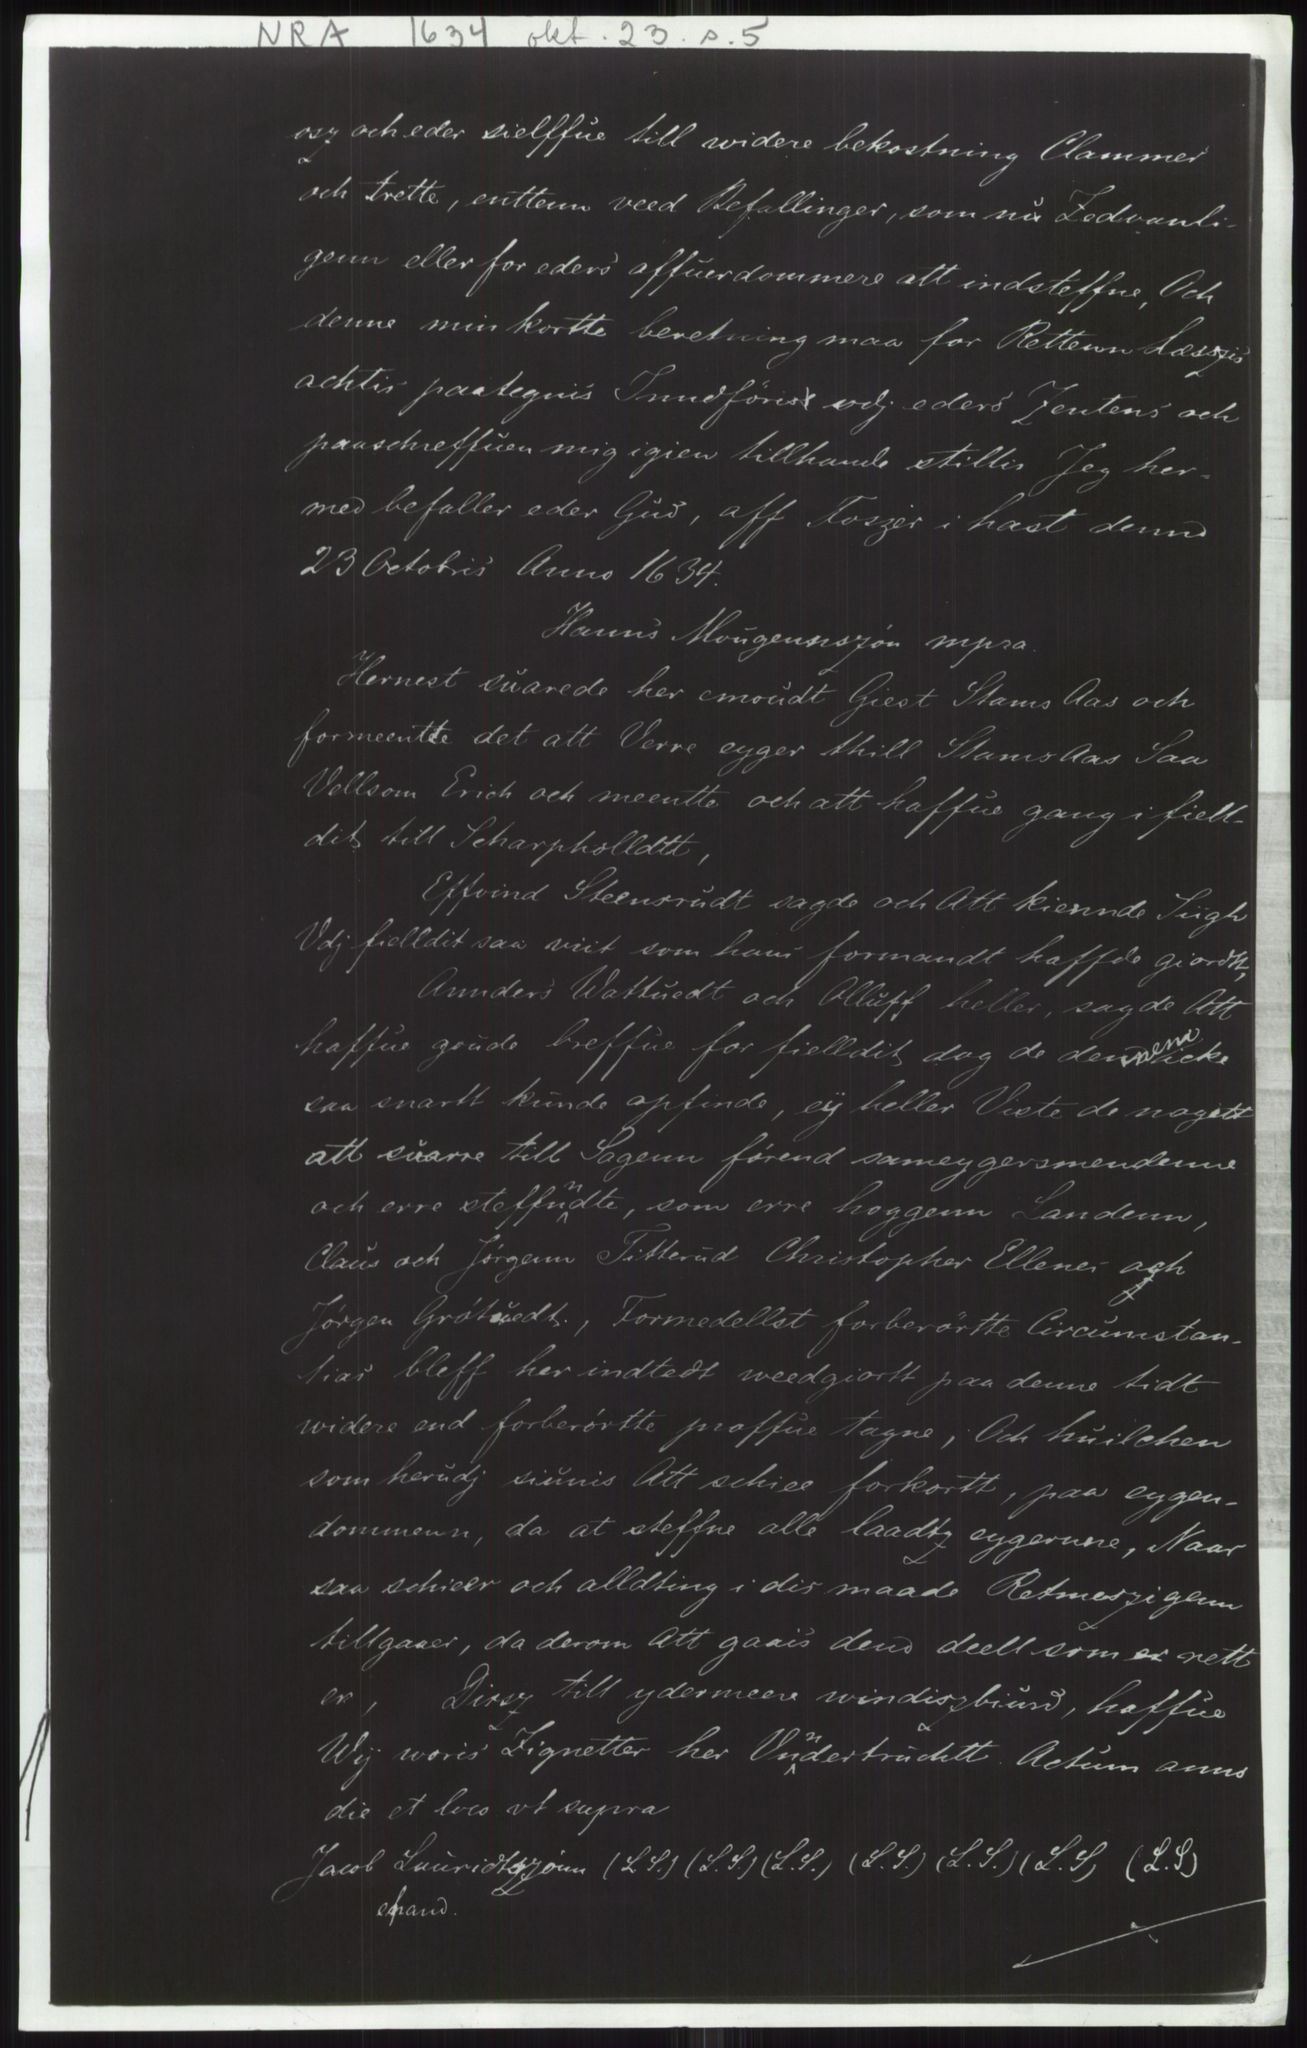 NRA 1634 okt. 23. s. 5
osz och eder sielffue till widere bekostning Clammer
och trette, enttenn veed Befallinger, som nu Zedvanli-
genn eller for eders affuerdommere att indsteffne, Och
denne min kortte beretning maa for Rettenn Læszis
achtis paategnis Inndföris vdj eders Zentens och
paaschreffuen mig igien tillhande stillis Jeg her-
med befaller eder Gud, aff Foszer i hast dennd
23 Octobris Anno 1634.
Hanns Mougennszøn mpra.
Hernest suarede her emoudt Giest Stams Aas och
formeentte det att Verre eyger thill Stams Aas Saa
Vellsom Erich och meentte och att haffue gang i fiell-
dit till Scharpholldtt,
Effvind Steensrudt sagde och Att kiennde Siigh
Vdj fielldit saa viit som hans formandt haffde giordtt,
Annders Wattuedt och Olluff heller, sagde Att
haffue goude breffue for fielldit dog de dem icke
saa snartt kunde opfinde, eÿ heller Viste de nogett
att suarre till Sagenn førend sameygersmendenne
och erre steffundte, som erre hoggenn Landenn,
Claus och Jørgenn Titterud Christopher Ellenes och
Jørgen Grötuedt., Formedellst forberörtte Circumstan-
tias bleff her indtedt weedgiortt paa denne tidt
widere end forberörtte proffue tagne, Och huilchen
som herudj siunis Att schiee forkortt, paa eygen-
dommenn, da at steffne alle laadtz eygernne, Naar
saa schieer och alldting i dis maade Retmeszigenn
tillgaaer, da derom Att gaais dend deell som er rett
er, Disz till ydermeere windiszbiurd, haffue
Wÿ woris Zignetter her Vnndertrucktt. Actum anno
die et loco vt supra
Jacob Lauridtszønn (L.S.) (L.S.) (L.S.) (L.S.) (L.S.) (L.S) (L.S)